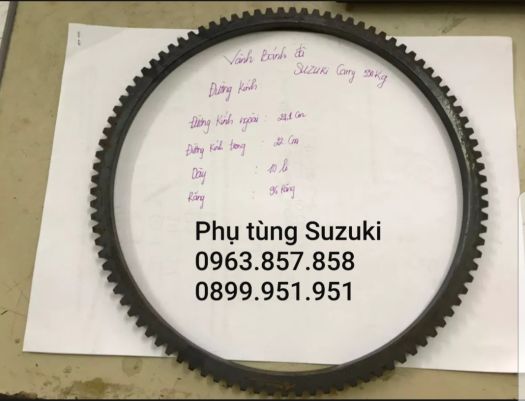 Vành Bánh đà
SUZUKI Carry Kg
Đường Kính
Đường Kính ngoài : Cm
Đường Kính trong : 22 Cm
Dày : 10 li
Răng : Răng
Phụ tùng Suzuki
0963.857.858
0899.951.951